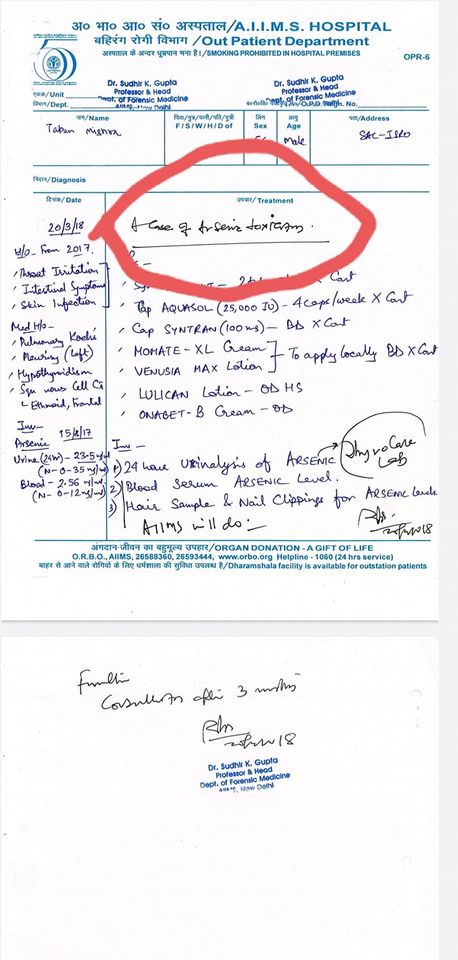 अ० भा० आ० सं० अस्पताल/A.I.I.M.S. HOSPITAL
बहिरंग रोगी विभाग/Out Patient Department
अस्पताल के अन्दर धूम्रपान मना है।/SMOKING PROHIBITED IN HOSPITAL PREMISES
OPR-6
Dr. Sudhir K. Gupta
Professor & Head
Dept. of Forensic Medicine
Dr. Sudhir K. Gupta
Professor & Head
Dept. of Forensic Medicine
एकक/Unit
विभाग/Dept.
नाम/Name
पिता/पुत्र/पत्नी/पति/पुत्री
F/S/W/H/D of
लिंग
Sex
आयु
Age
पता/Address
Male
SAC-ISRO
निदान/Diagnosis
दिनांक/Date
उपचार/Treatment
20/3/18
A Case of Arsenic toxicosis.
H/O- From 2017.
Throat Irritation
Intestinal Symptoms
Skin Infection
Cap AQUASOL (25,000 IU) - 4caps/week X Cont
Cap SYNTRAN (100mg) - BD X Cont
MOMATE-XL Cream
VENUSIA MAX Lotion
To apply locally BD X Cont
LULICAN Lotion - OD HS
ONABET-B Cream - OD
Med H/o -
Pulmonary Koch's
Pleurisy (Left)
Hypothyroidism
Squamous Cell Ca
Ethmoid, Frontal
Inv-
Arsenic 15/8/17
Urine (24hr) - 23.5
(N- 0-35
Blood - 2.56
(N- 0-12
Inv -
1) 24 hour Urinalysis of ARSENIC
2) Blood Serum ARSENIC Level.
3) Hair Sample & Nail Clippings for ARSENIC levels
Thyrocare
Lab
AIIMS will do:-
अंगदान-जीवन का बहुमूल्य उपहार/ORGAN DONATION - A GIFT OF LIFE
O.R.B.O., AIIMS, 26588360, 26593444, www.orbo.org Helpline - 1060 (24 hrs service)
बाहर से आने वाले रोगियों के लिए धर्मशाला की सुविधा उपलब्ध है/Dharamshala facility is available for outstation patients
after 3 months
Dr. Sudhir K. Gupta
Professor & Head
Dept. of Forensic Medicine
New Delhi